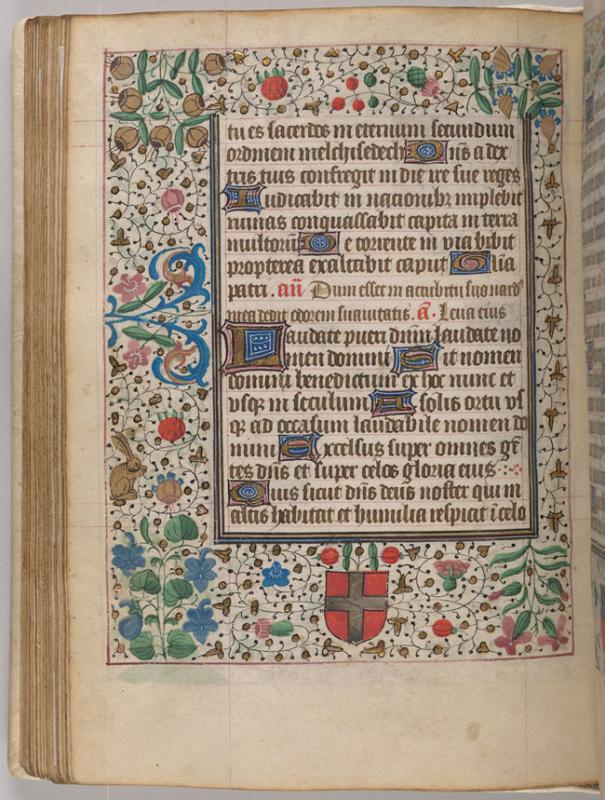 tu es sacerdos in eternum secundum
ordinem melchisedech Dn̄s a dex
tris tuis confregit in die ire sue reges
Iudicabit in nacionibꝫ implebit
ruinas conquassabit capita in terra
multorū De torrente in via bibit
propterea exaltabit caput Glīa
patri . añ Dum esset in accubitu suo nardꝰ
mea dedit odorem suavitatis . a̅ . Leua eius
Laudate pueri dnm̄ laudate no
men domini Sit nomen
domini benedictum ex hoc nunc et
vsqꝫ in seculum A solis ortu vs
qꝫ ad occasum laudabile nomen do
mini Excelsus super omnes gē
tes dn̄s et super celos gloria eius
Quis sicut dn̄s deus noster qui in
altis habitat et humilia respicit ī celo